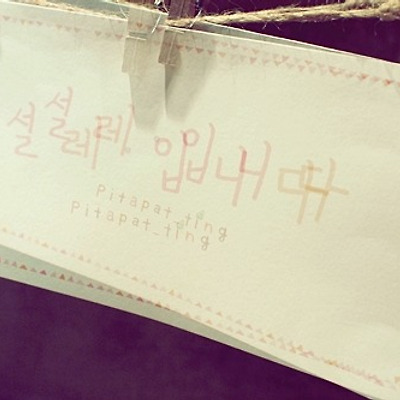 설레입니다
Pitapat_ting
Pitapat_ting